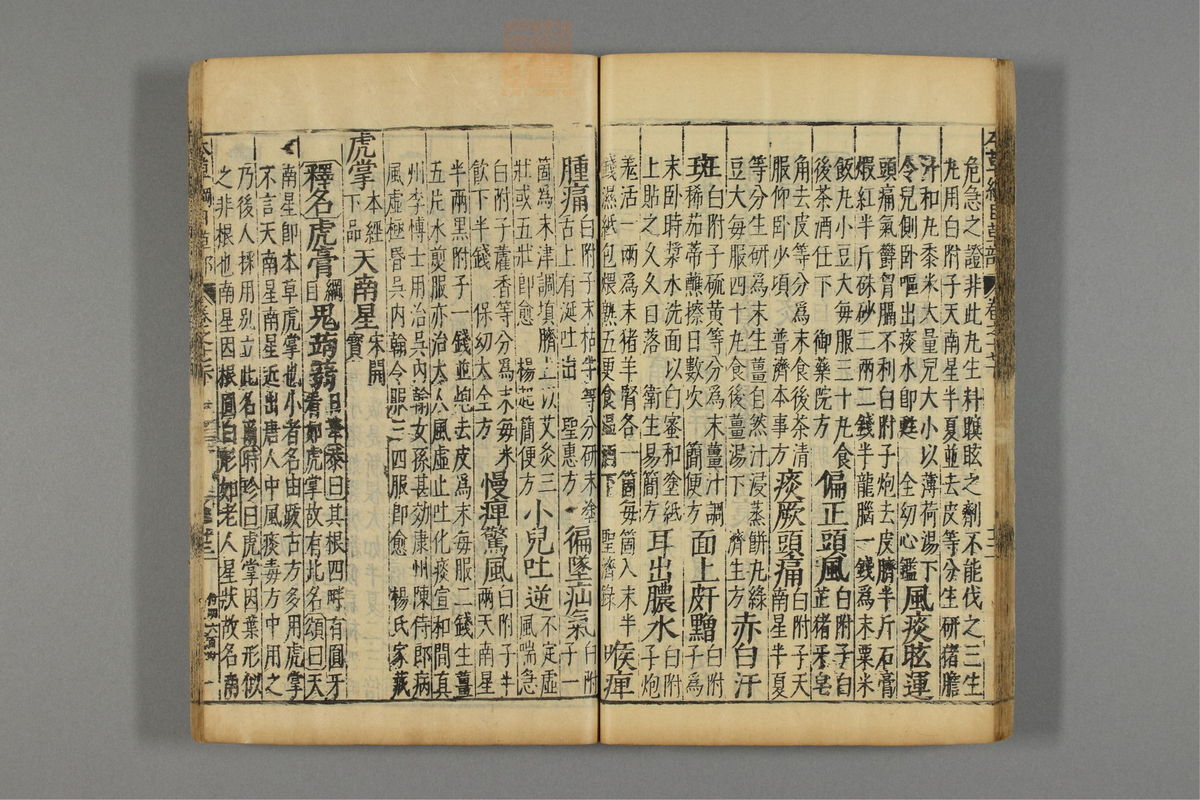 危急之證非此丸生料瞑眩之劑不能伐之三生
丸用白附子天南星半夏並去皮等分生研猪膽
汁和丸黍米大量兒大小以薄荷湯下
令兒側卧嘔出痰水即甦 全幼心鑑 風痰眩運
頭痛氣鬱胷膈不利白附子炮去皮臍半斤石膏
煆紅半斤硃砂二兩二錢半龍腦一錢爲末粟米
飯丸小豆大每服三十丸食
後茶酒任下 御藥院方 偏正頭風 白附子白芷猪牙皂
角去皮等分爲末食後茶清
服仰卧少頃 普濟本事方 痰厥頭痛 白附子天南星半夏
等分生研爲末生薑自然汁浸蒸餅丸綠
豆大每服四十丸食後薑湯下 濟生方 赤白汗
斑 白附子硫黄等分爲末薑汁調
稀茄蒂蘸擦日數次 簡便方 面上皯䵟 白附子爲
末卧時漿水洗面以白蜜和塗紙
上貼之久久自落 衛生易簡方 耳出膿水 白附子炮
羗活一兩爲末猪羊腎各一箇每箇入末半
錢濕紙包煨熟五更食溫酒下 聖濟錄 喉痺
腫痛 白附子末枯等分研末塗
舌上有涎吐出 聖惠方 偏墜疝氣 白附子一
箇爲末津調填臍上以艾灸三
壯或五壯即愈 楊起簡便方 小兒吐逆 不定虛風喘急
白附子藿香等分爲末每米
飲下半錢 保幼大全方 慢痺驚風 白附子半兩天南星
半兩黑附子一錢並炮去皮爲末每服二錢生薑
五片水煎服亦治大人風虛止吐化痰宣和間真
州李博士用治吳内翰女孫甚効康州陳侍郎病
風虛極昏吳内翰令服三四服即愈 楊氏家藏
虎掌 本經下品 天南星 宋開寶
釋名 虎膏 綱目 鬼蒟蒻 日華 恭曰其根四畔有圓牙
看如虎掌故有此名頌曰天
南星即本草虎掌也小者名由跋古方多用虎掌
不言天南星南星近出唐人中風痰毒方中用之
乃後人採用别立此名爾時珍曰虎掌因葉形似
之非根也南星因根圓白形如老人星狀故名南